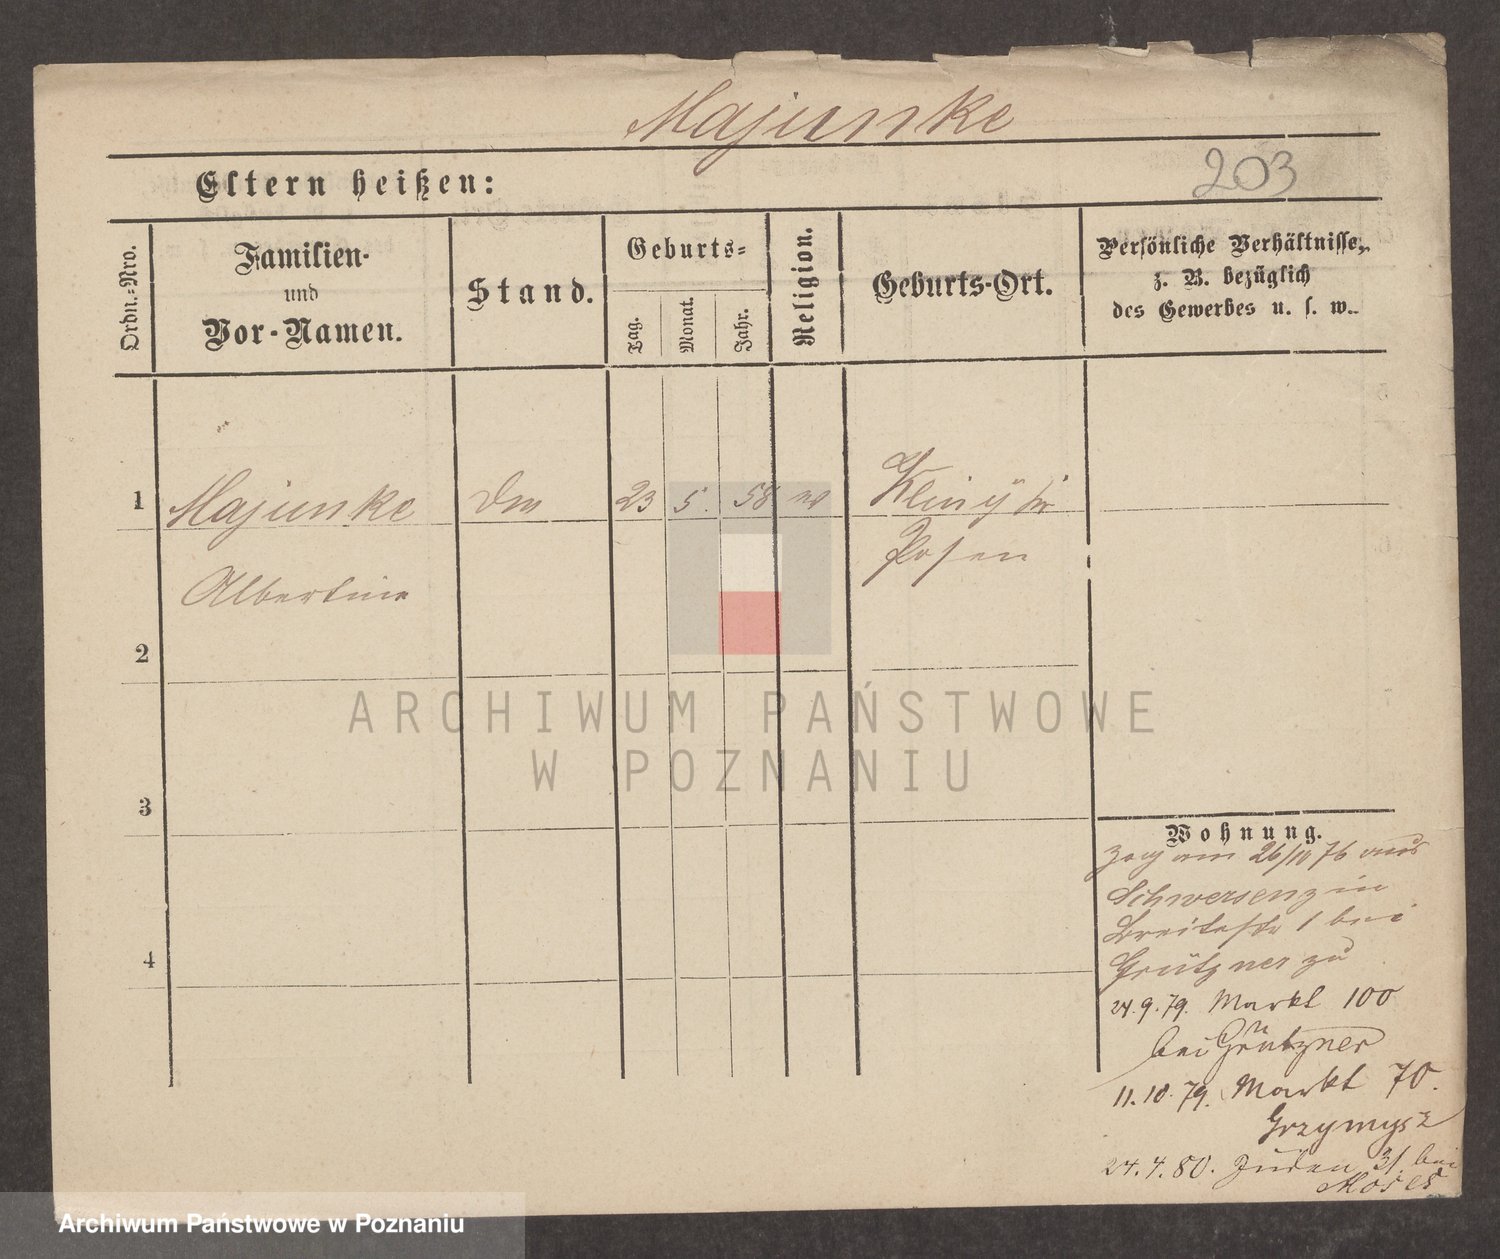 Majunke
203
Eltern heißen:
Ordn.-Nro.
Familien-
und
Vor-Namen.
Stand.
Geburts-
Tag.
Monat.
Jahr.
Religion.
Geburts-Ort.
Persönliche Verhältnisse,
z. B. bezüglich
des Gewerbes u. s. w.
1
Majunke
23
5.
58
Posen
Albertine
2
ARCHIWUM PAŃSTWOWE
W POZNANIU
3
Wohnung.
zog am 26/11 76 aus
Schwersenz in
Breitestr 1 bei
Grützner zu
4
24.9.79. Markt 100
bei Grützner
11.10.79. Markt 70.
Grzymysz
24.4.80. Juden 31. bei
Moses
Archiwum Państwowe w Poznaniu